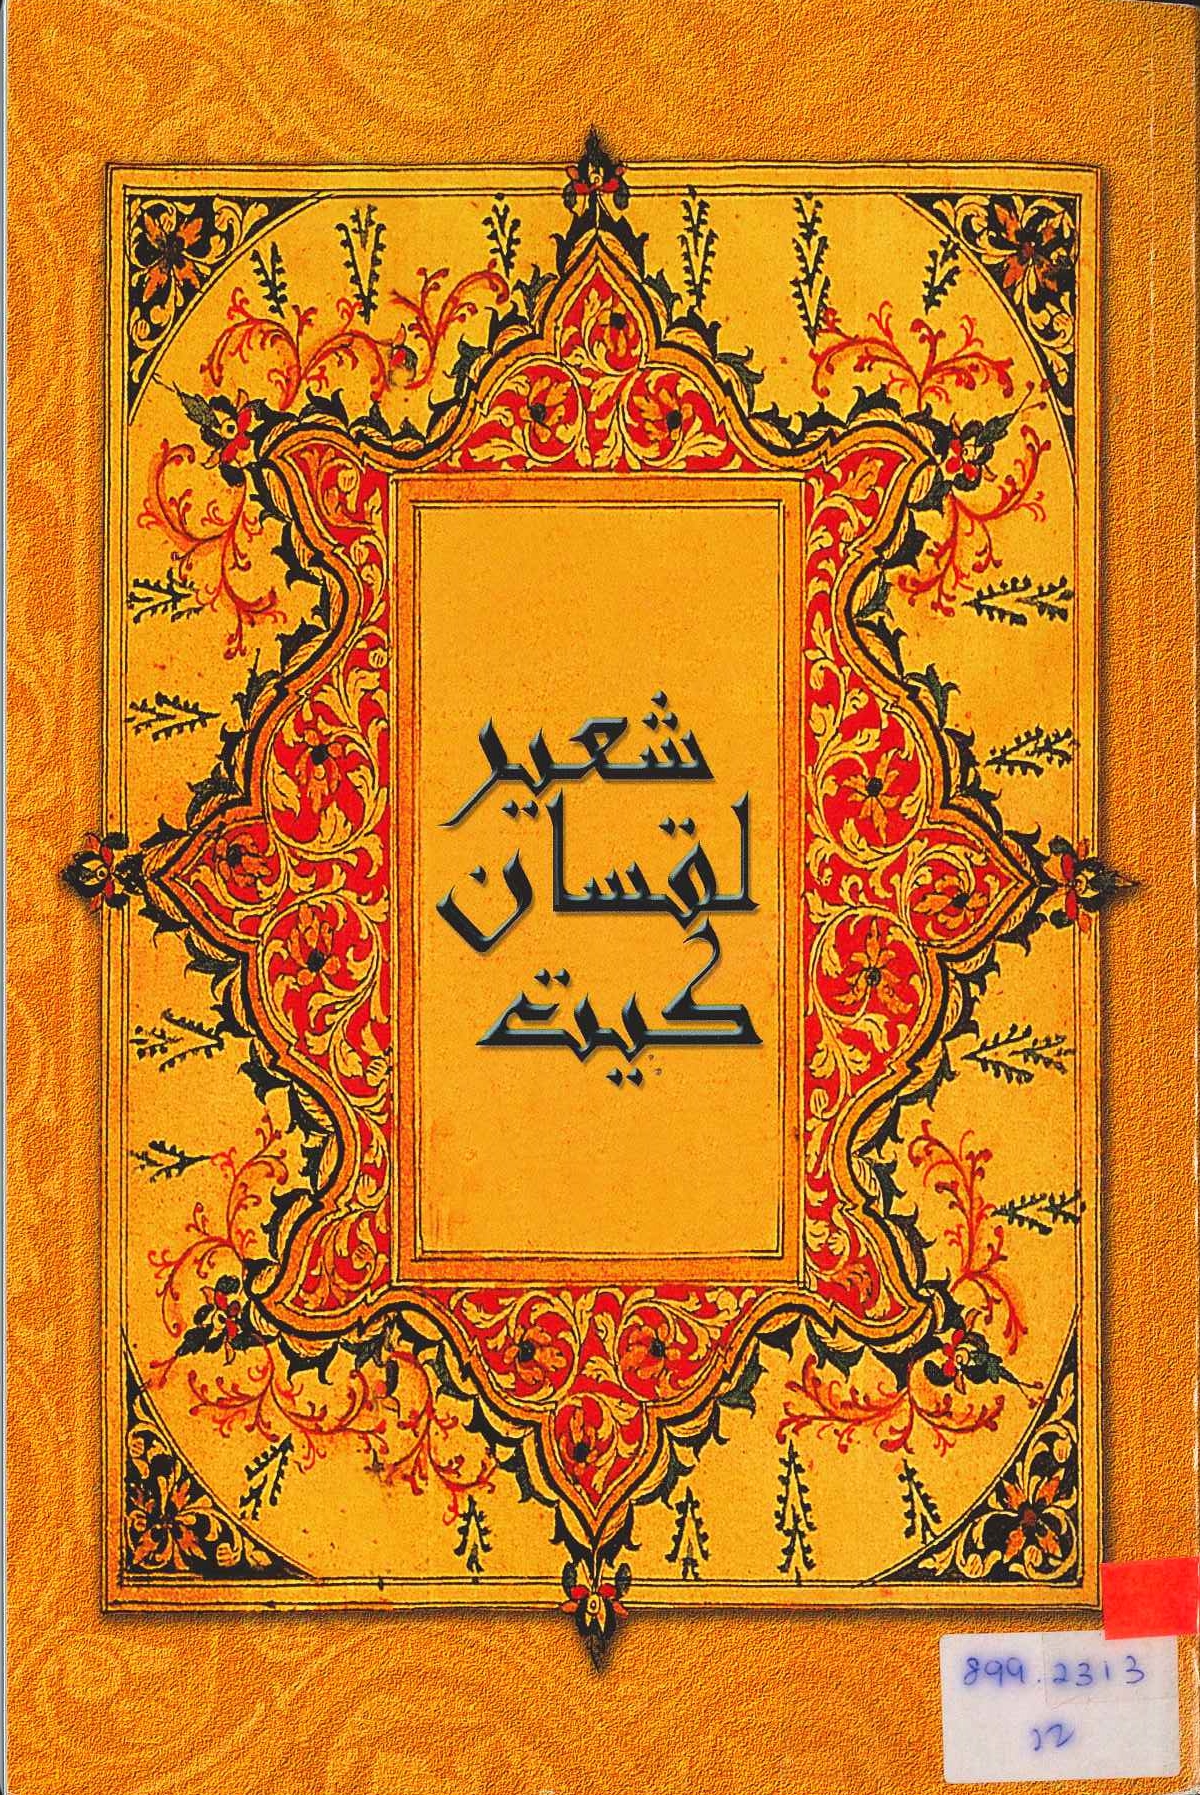 شعير
لقسان
كيت
899.2313